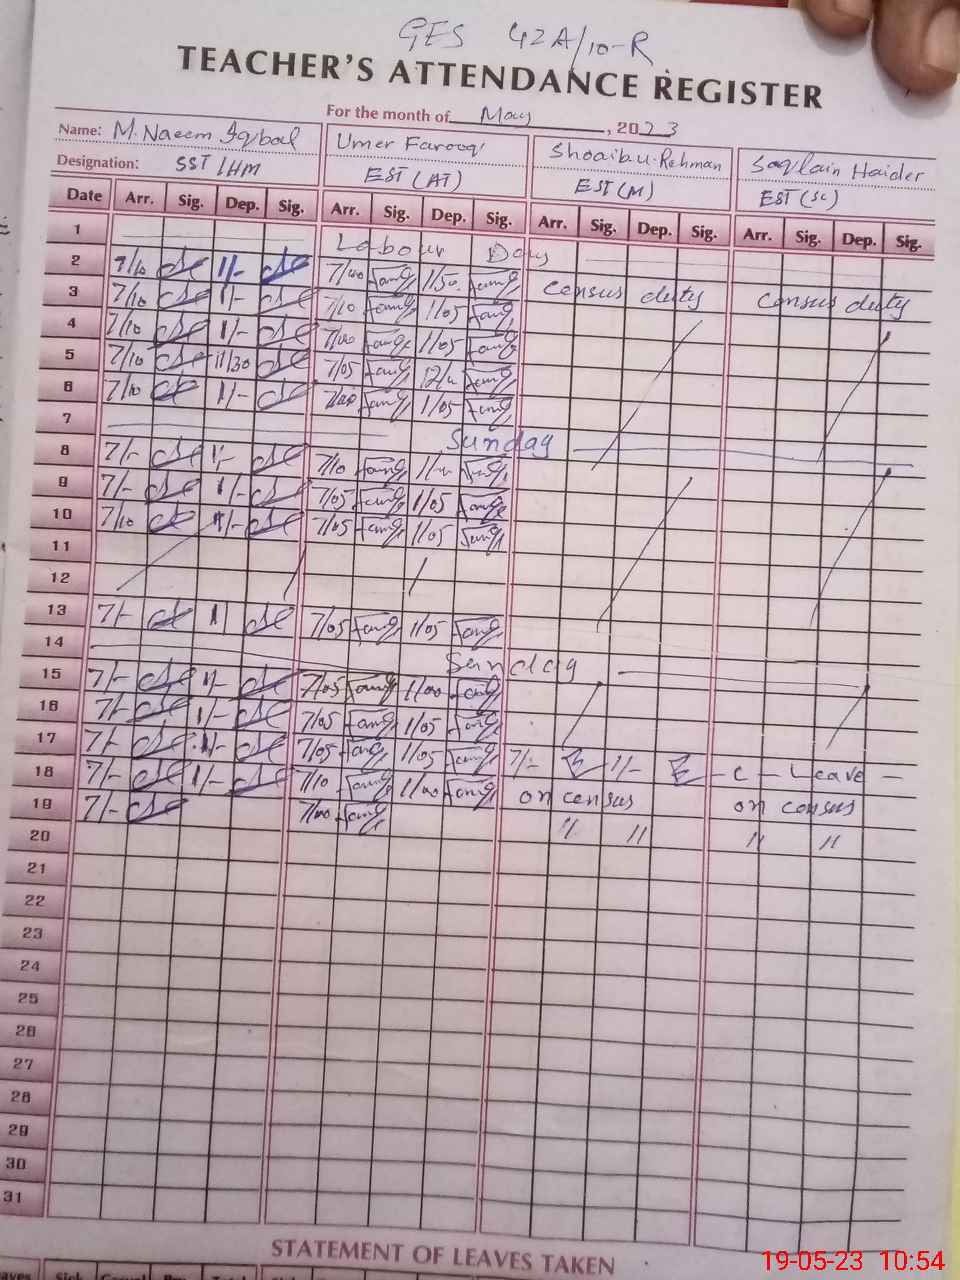 GES 42A/10-R
TEACHER'S ATTENDANCE REGISTER
For the month of May, 2023
Name: M. Naeem Iqbal Umer Farooq Shoaib u. Rehman Saqlain Haider
Designation: SST/HM EST (AT) EST (M) EST (SC)
Date Arr. Sig. Dep. Sig. Arr. Sig. Dep. Sig. Arr. Sig. Dep. Sig. Arr. Sig. Dep. Sig.
1 Labour Day
2 7/10 1/- 7/00 1/50
3 7/10 1/- 7/10 1/05 Census duty Census duty
4 7/10 1/- 7/00 1/05
5 7/10 11/30 7/05
6 7/10 1/- 7/00 1/05
7 Sunday
8 7/- 1/- 7/10
9 7/- 1/- 7/05 1/05
10 7/10 1/- 7/05 1/05
11
12
13 7/- 1/ 7/05 1/05
14 Sunday
15 7/- 1/- 7/05 1/00
16 7/- 1/- 7/05 1/05
17 7/- 1/- 7/05 1/05 7/- 1/- - C - Leave -
18 7/- 1/- 7/10 1/00 on census on census
19 7/- 7/00 " " " "
20
21
22
23
24
25
26
27
28
29
30
31
STATEMENT OF LEAVES TAKEN
19-05-23 10:54